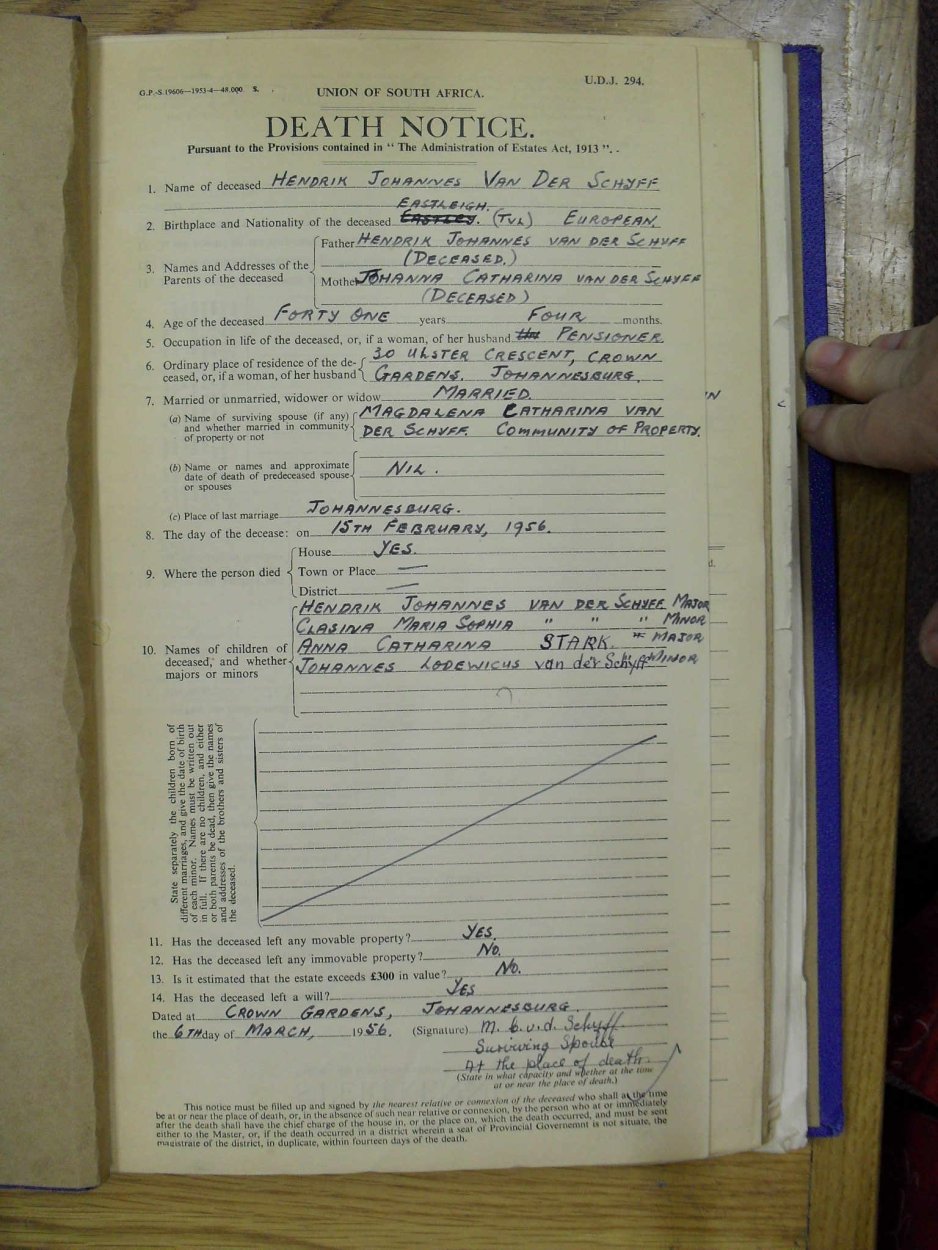 G.P.-S.19606—1953-4—48.000. S.
U.D.J. 294.
UNION OF SOUTH AFRICA.
DEATH NOTICE.
Pursuant to the Provisions contained in " The Administration of Estates Act, 1913 ".
1. Name of deceased HENDRIK JOHANNES VAN DER SCHYFF
EASTLEIGH.
2. Birthplace and Nationality of the deceased EASTLEY. (TVL) EUROPEAN.
Father HENDRIK JOHANNES VAN DER SCHYFF
(DECEASED.)
3. Names and Addresses of the
Parents of the deceased
Mother JOHANNA CATHARINA VAN DER SCHYFF
(DECEASED)
4. Age of the deceased FORTY ONE years FOUR months.
5. Occupation in life of the deceased, or, if a woman, of her husband PENSIONER.
6. Ordinary place of residence of the de- 30 ULSTER CRESCENT, CROWN
ceased, or, if a woman, of her husband GARDENS. JOHANNESBURG.
7. Married or unmarried, widower or widow MARRIED.
(a) Name of surviving spouse (if any) MAGDALENA CATHARINA VAN
and whether married in community DER SCHYFF. COMMUNITY OF PROPERTY.
of property or not
(b) Name or names and approximate
date of death of predeceased spouse NIL.
or spouses
(c) Place of last marriage JOHANNESBURG.
8. The day of the decease: on 15TH FEBRUARY, 1956.
House YES.
9. Where the person died Town or Place —
District —
HENDRIK JOHANNES VAN DER SCHYFF MAJOR
CLASINA MARIA SOPHIA " " " MINOR
10. Names of children of ANNA CATHARINA STARK. MAJOR
deceased, and whether JOHANNES LODEWICUS van der Schyff MINOR
majors or minors
State separately the children born of
different marriages, and give the date of birth
of each minor. Names must be written out
in full. If there are no children, and either
or both parents be dead, then give the names
and addresses of the brothers and sisters of
the deceased.
11. Has the deceased left any movable property? YES.
12. Has the deceased left any immovable property? NO.
13. Is it estimated that the estate exceeds £300 in value? NO.
14. Has the deceased left a will? YES
Dated at CROWN GARDENS, JOHANNESBURG.
the 6TH day of MARCH, 1956. (Signature) M. C. v. d. Schyff
Surviving Spouse
At the place of death.
(State in what capacity and whether at the time
at or near the place of death.)
This notice must be filled up and signed by the nearest relative or connexion of the deceased who shall at the time
be at or near the place of death, or, in the absence of such near relative or connexion, by the person who at or immediately
after the death shall have the chief charge of the house in, or the place on, which the death occurred, and must be sent
either to the Master, or, if the death occurred in a district wherein a seat of Provincial Governemnt is not situate, the
magistrate of the district, in duplicate, within fourteen days of the death.